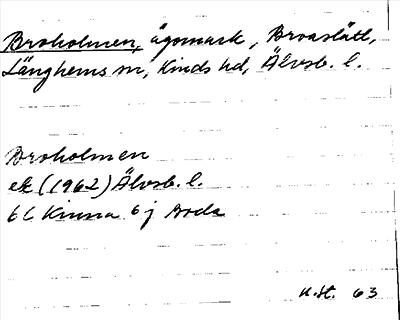 Broholmen, ägomark, Broaslätt,
Länghems sn, Kinds hd, Älvsb. l.
Broholmen
ek (1962) Älvsb. l.
6 C Kinna 6 j Boda
U.St. 63